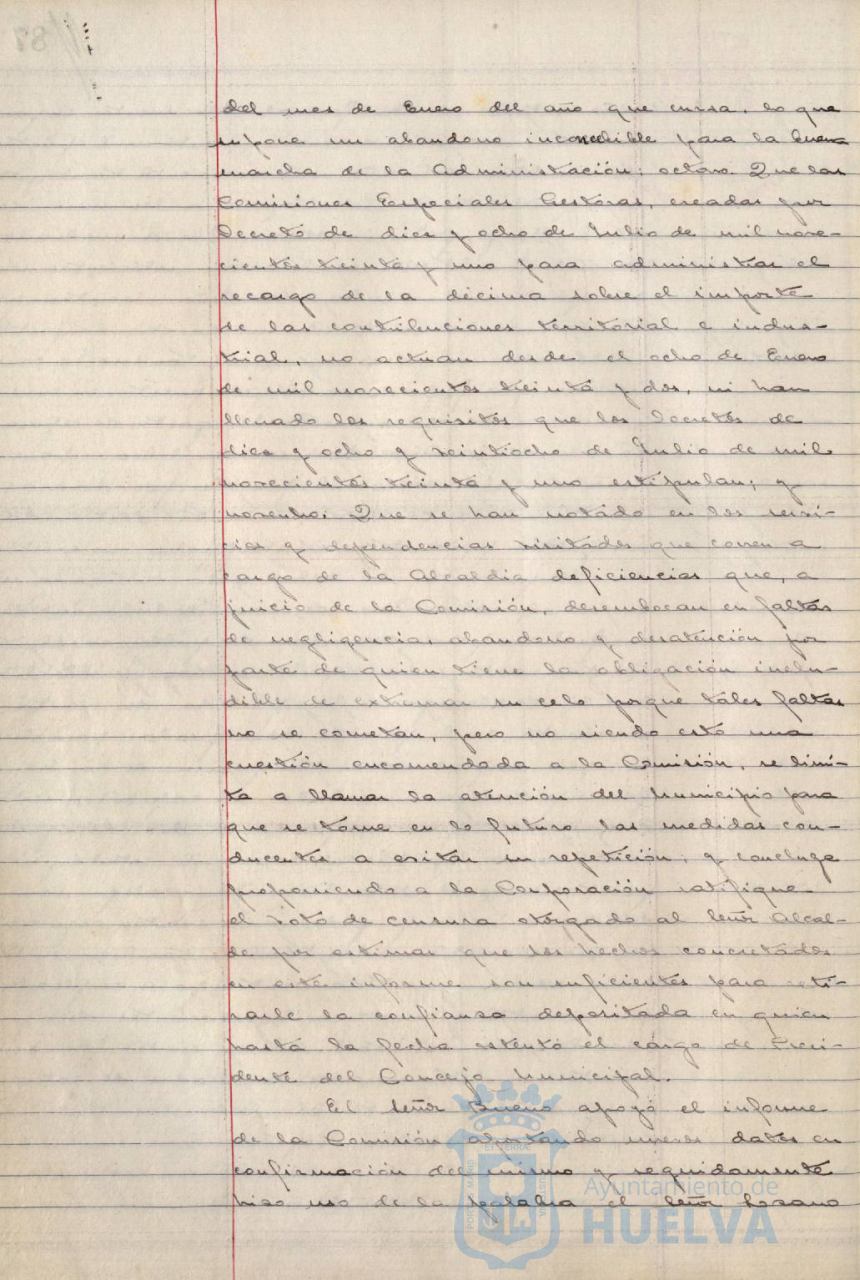 del mes de Enero del año que cursa, lo que
supone un abandono inconcebible para la buena
marcha de la Administración; octavo. Que las
Comisiones Especiales Gestoras, creadas por
Decreto de diez y ocho de Julio de mil nove-
cientos treinta y uno para administrar el
recargo de la décima sobre el importe
de las contribuciones territorial e indus-
trial, no actúan desde el ocho de Enero
de mil novecientos treinta y dos, ni han
llenado los requisitos que los Decretos de
diez y ocho y veintiocho de Julio de mil
novecientos treinta y uno estipulan; y
noveno. Que se han notado en los servi-
cios y dependencias visitados que corren a
cargo de la Alcaldía deficiencias que, a
juicio de la Comisión, desembocan en faltas
de negligencia, abandono y desatención por
parte de quien tiene la obligación inelu-
dible de extremar su celo porque tales faltas
no se cometan, pero no siendo esto una
cuestión encomendada a la Comisión, se limi-
ta a llamar la atención del Municipio para
que se tome en lo futuro las medidas con-
ducentes a evitar su repetición; y concluye
proponiendo a la Corporación ratifique
el voto de censura otorgado al Señor Alcal-
de por estimar que los hechos concretados
en este informe son suficientes para reti-
rarle la confianza depositada en quien
hasta la fecha ostentó el cargo de Presi-
dente del Concejo Municipal.
El Señor Bueno apoyó el informe
de la Comisión aportando nuevos datos en
confirmación del mismo y seguidamente
hizo uso de la palabra el Señor Lozano
Ayuntamiento de
HUELVA